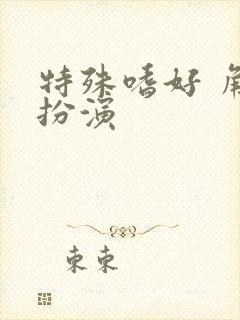 特殊嗜好 角
扮演
東東